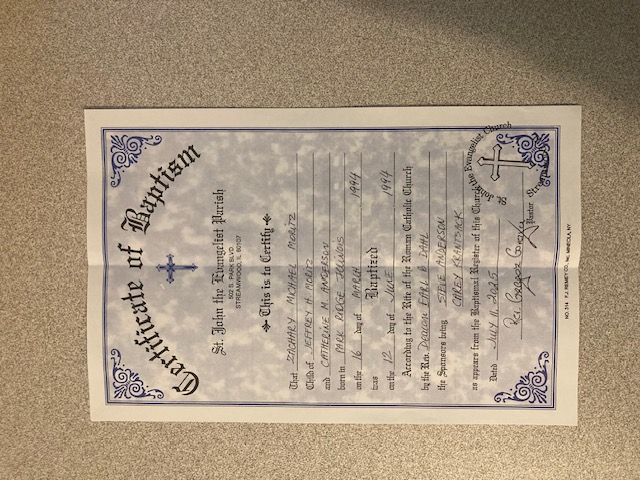 Certificate of Baptism
St. John the Evangelist Parish
502 S. PARK BLVD.
STREAMWOOD, IL 60107
This is to Certify
That ZACHARY MICHAEL MORITZ
Child of JEFFREY H. MORITZ
and CATHERINE M. ANDERSON
born in PARK RIDGE ILLINOIS
on the 16 day of MARCH 1994
was Baptized
on the 12 day of JUNE 1994
According to the Rite of the Roman Catholic Church
by the Rev. DEACON EARL B DAHL
the Sponsors being STEVE ANDERSON
CAREY KRANTSACK
as appears from the Baptismal Register of this Church
Dated JULY 11, 2025
Rev.
Pastor
St. John the Evangelist Church
NO. 314 F.J. REMEY CO., Inc. MINEOLA, NY